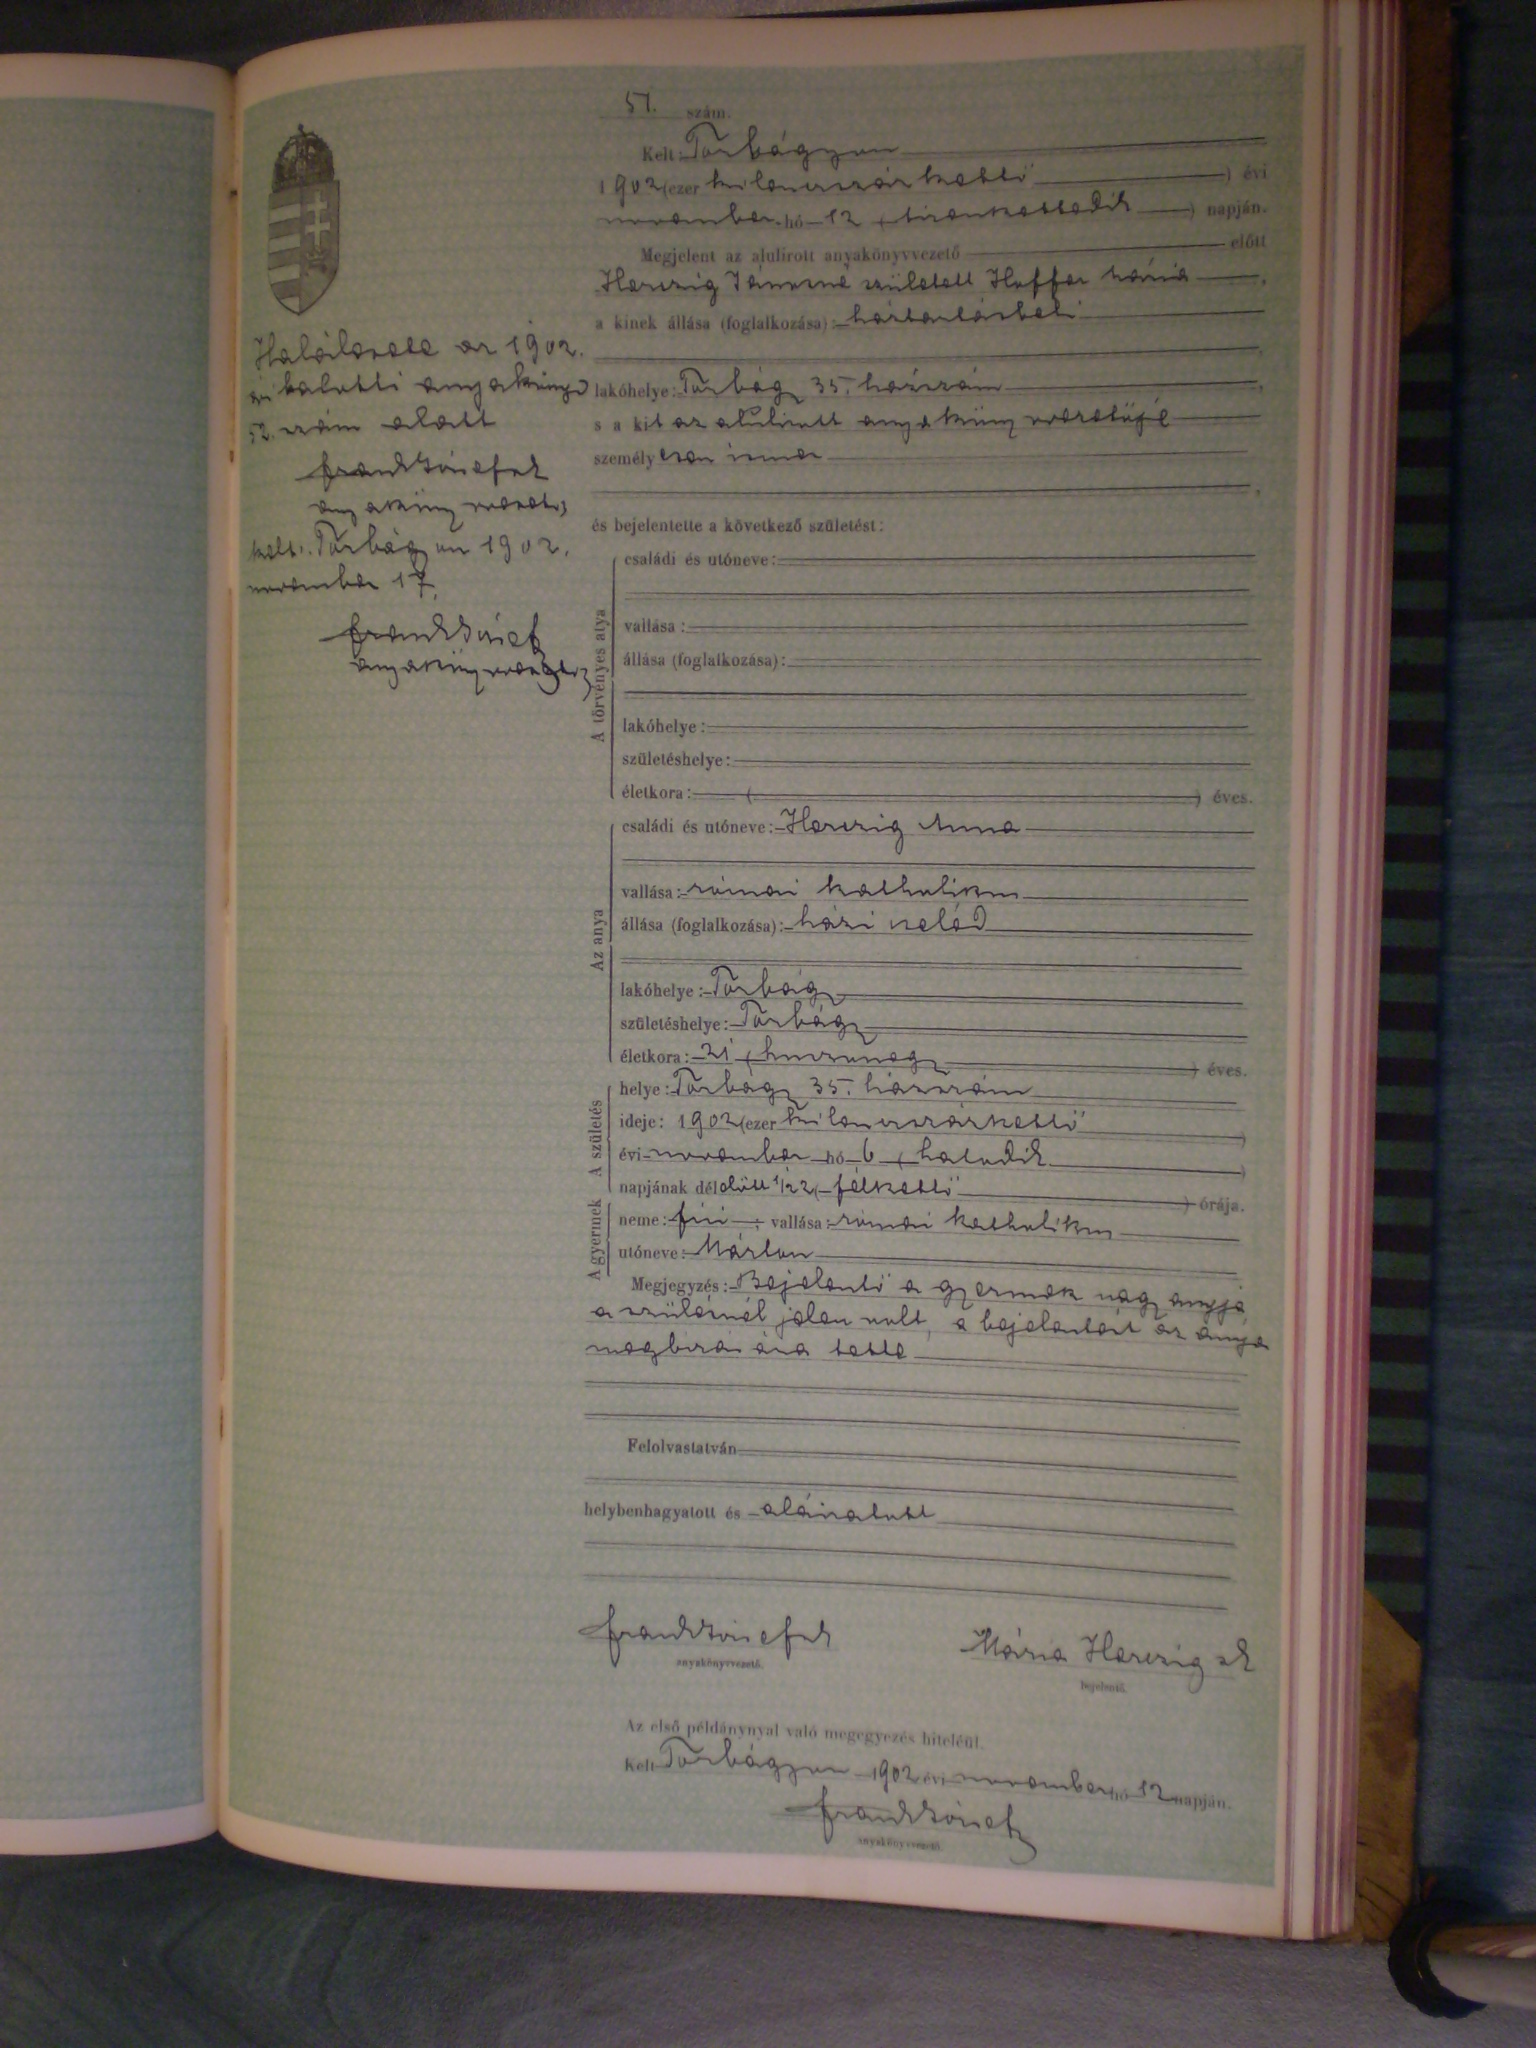 51. szám.
Kelt: Törbágyon
1902 (ezer kilenczszázkettő) évi
november hó 12 (tizenkettedik) napján.
Megjelent az alulírott anyakönyvvezető előtt
Herczig Jánosné született Heffer Mária,
a kinek állása (foglalkozása): háztartásbeli
lakóhelye: Törbágy 35. házszám,
s a kit az alulirott anyakönyvvezetője
személyesen ismer
és bejelentette a következő születést:
A törvényes atya
családi és utóneve:
vallása:
állása (foglalkozása):
lakóhelye:
születéshelye:
életkora: ( ) éves.
Az anya
családi és utóneve: Herczig Anna
vallása: római katholikus
állása (foglalkozása): házi cseléd
lakóhelye: Törbágy
születéshelye: Törbágy
életkora: 21 (huszonegy) éves.
A születés
helye: Törbágy 35. házszám
ideje: 1902 (ezer kilenczszázkettő)
évi november hó 6 (hatodik)
napjának délelőtt 1/2 2 (félkettő) órája.
A gyermek
neme: fiú; vallása: római katholikus
utóneve: Márton
Megjegyzés: Bejelentő a gyermek nagyanyja
a szülésnél jelen volt, a bejelentést az anya
megbizásából tette
Felolvastatván
helybenhagyatott és aláiratott
Frank József sk
anyakönyvvezető.
Mária Herczig sk
bejelentő.
Az első példánynyal való megegyezés hiteléül.
Kelt Törbágyon 1902 évi november hó 12 napján.
Frank József
anyakönyvvezető.
Halálesete az 1902.
évi halotti anyakönyv
52. szám alatt
Frank József sk
anyakönyvvezető
kelt. Törbágyon 1902.
november 17.
Frank József
anyakönyvvezető